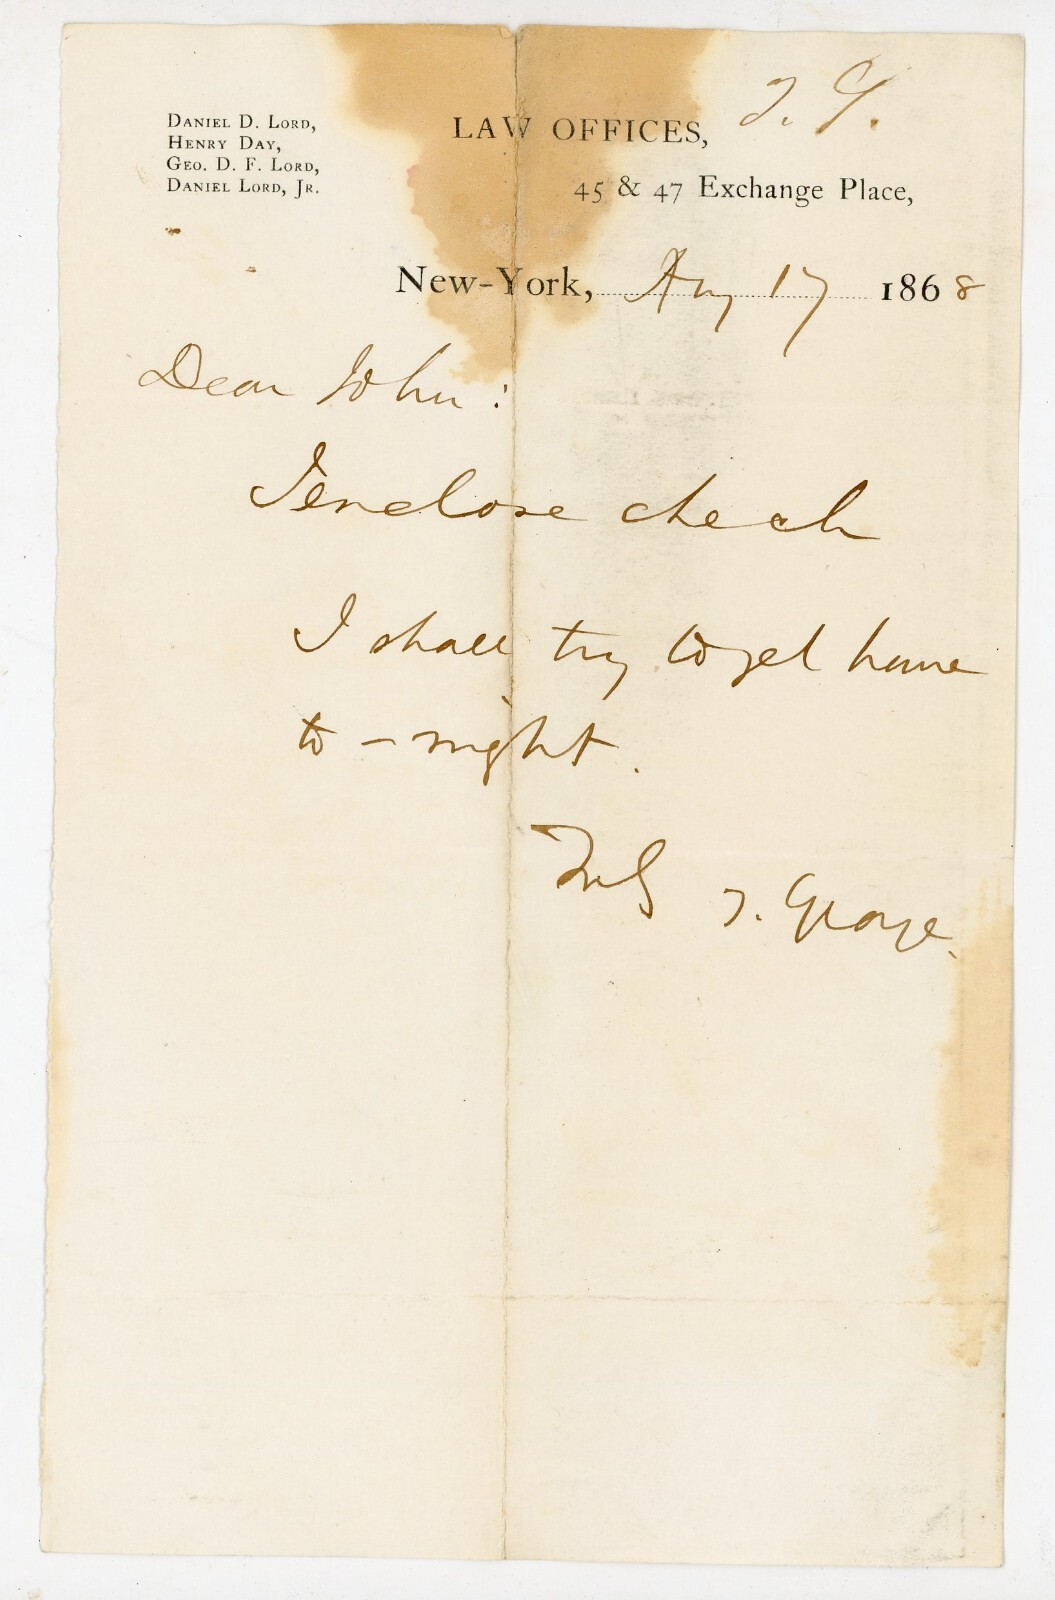 Daniel D. Lord,
Henry Day,
Geo. D. F. Lord,
Daniel Lord, Jr.
J. G.
LAW OFFICES,
45 & 47 Exchange Place,
New-York, Aug 17 1868
Dear John:
I enclose check
I shall try to get home
to-night.
J. George.